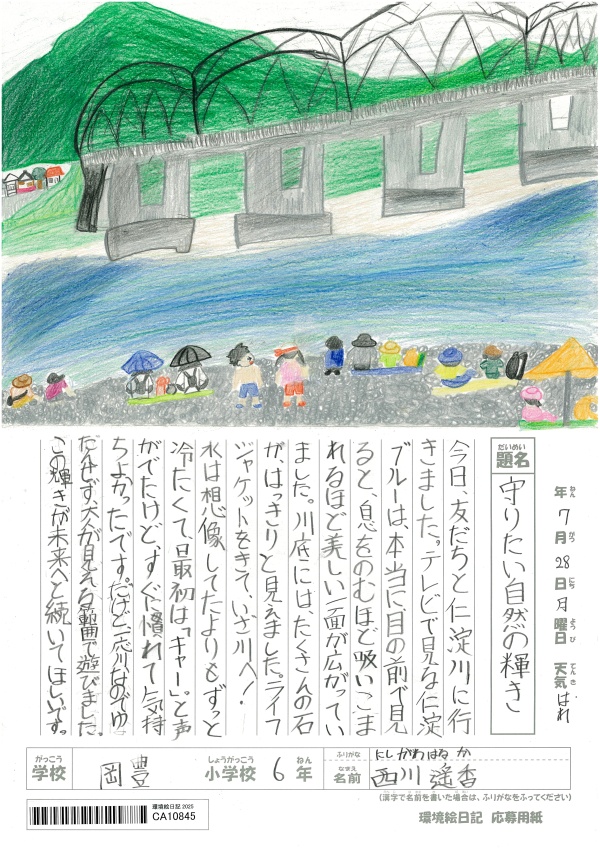 年 7月 28日 月曜日 天気 はれ
ねん がつ にち ようび てんき
だいめい
題名
守りたい自然の輝き
今日、友だちと仁淀川に行
きました。テレビで見る仁淀
ブルーは、本当に、目の前で見
ると、息をのむほど吸いこま
れるほど美しい一面が広がってい
ました。川底には、たくさんの石
が、はっきりと見えました。ライフ
ジャケットをきて、いざ川へ!
水は想像してたよりもずっと
冷たくて、最初は「キャー」。と声
がでたけど、すぐに慣れて気持
ちよかったです。だけど、一応川なのでゆ
だんせず、大人が見える範囲で遊びました。
この輝きが未来へと続いてほしいです。
がっこう
学校
岡豊
しょうがっこう
小学校
6
ねん
年
ふりがな
にしがわ はるか
なまえ
名前
西川 遥香
(漢字で名前を書いた場合は、ふりがなをふってください)
環境絵日記 2025
CA10845
環境絵日記 応募用紙